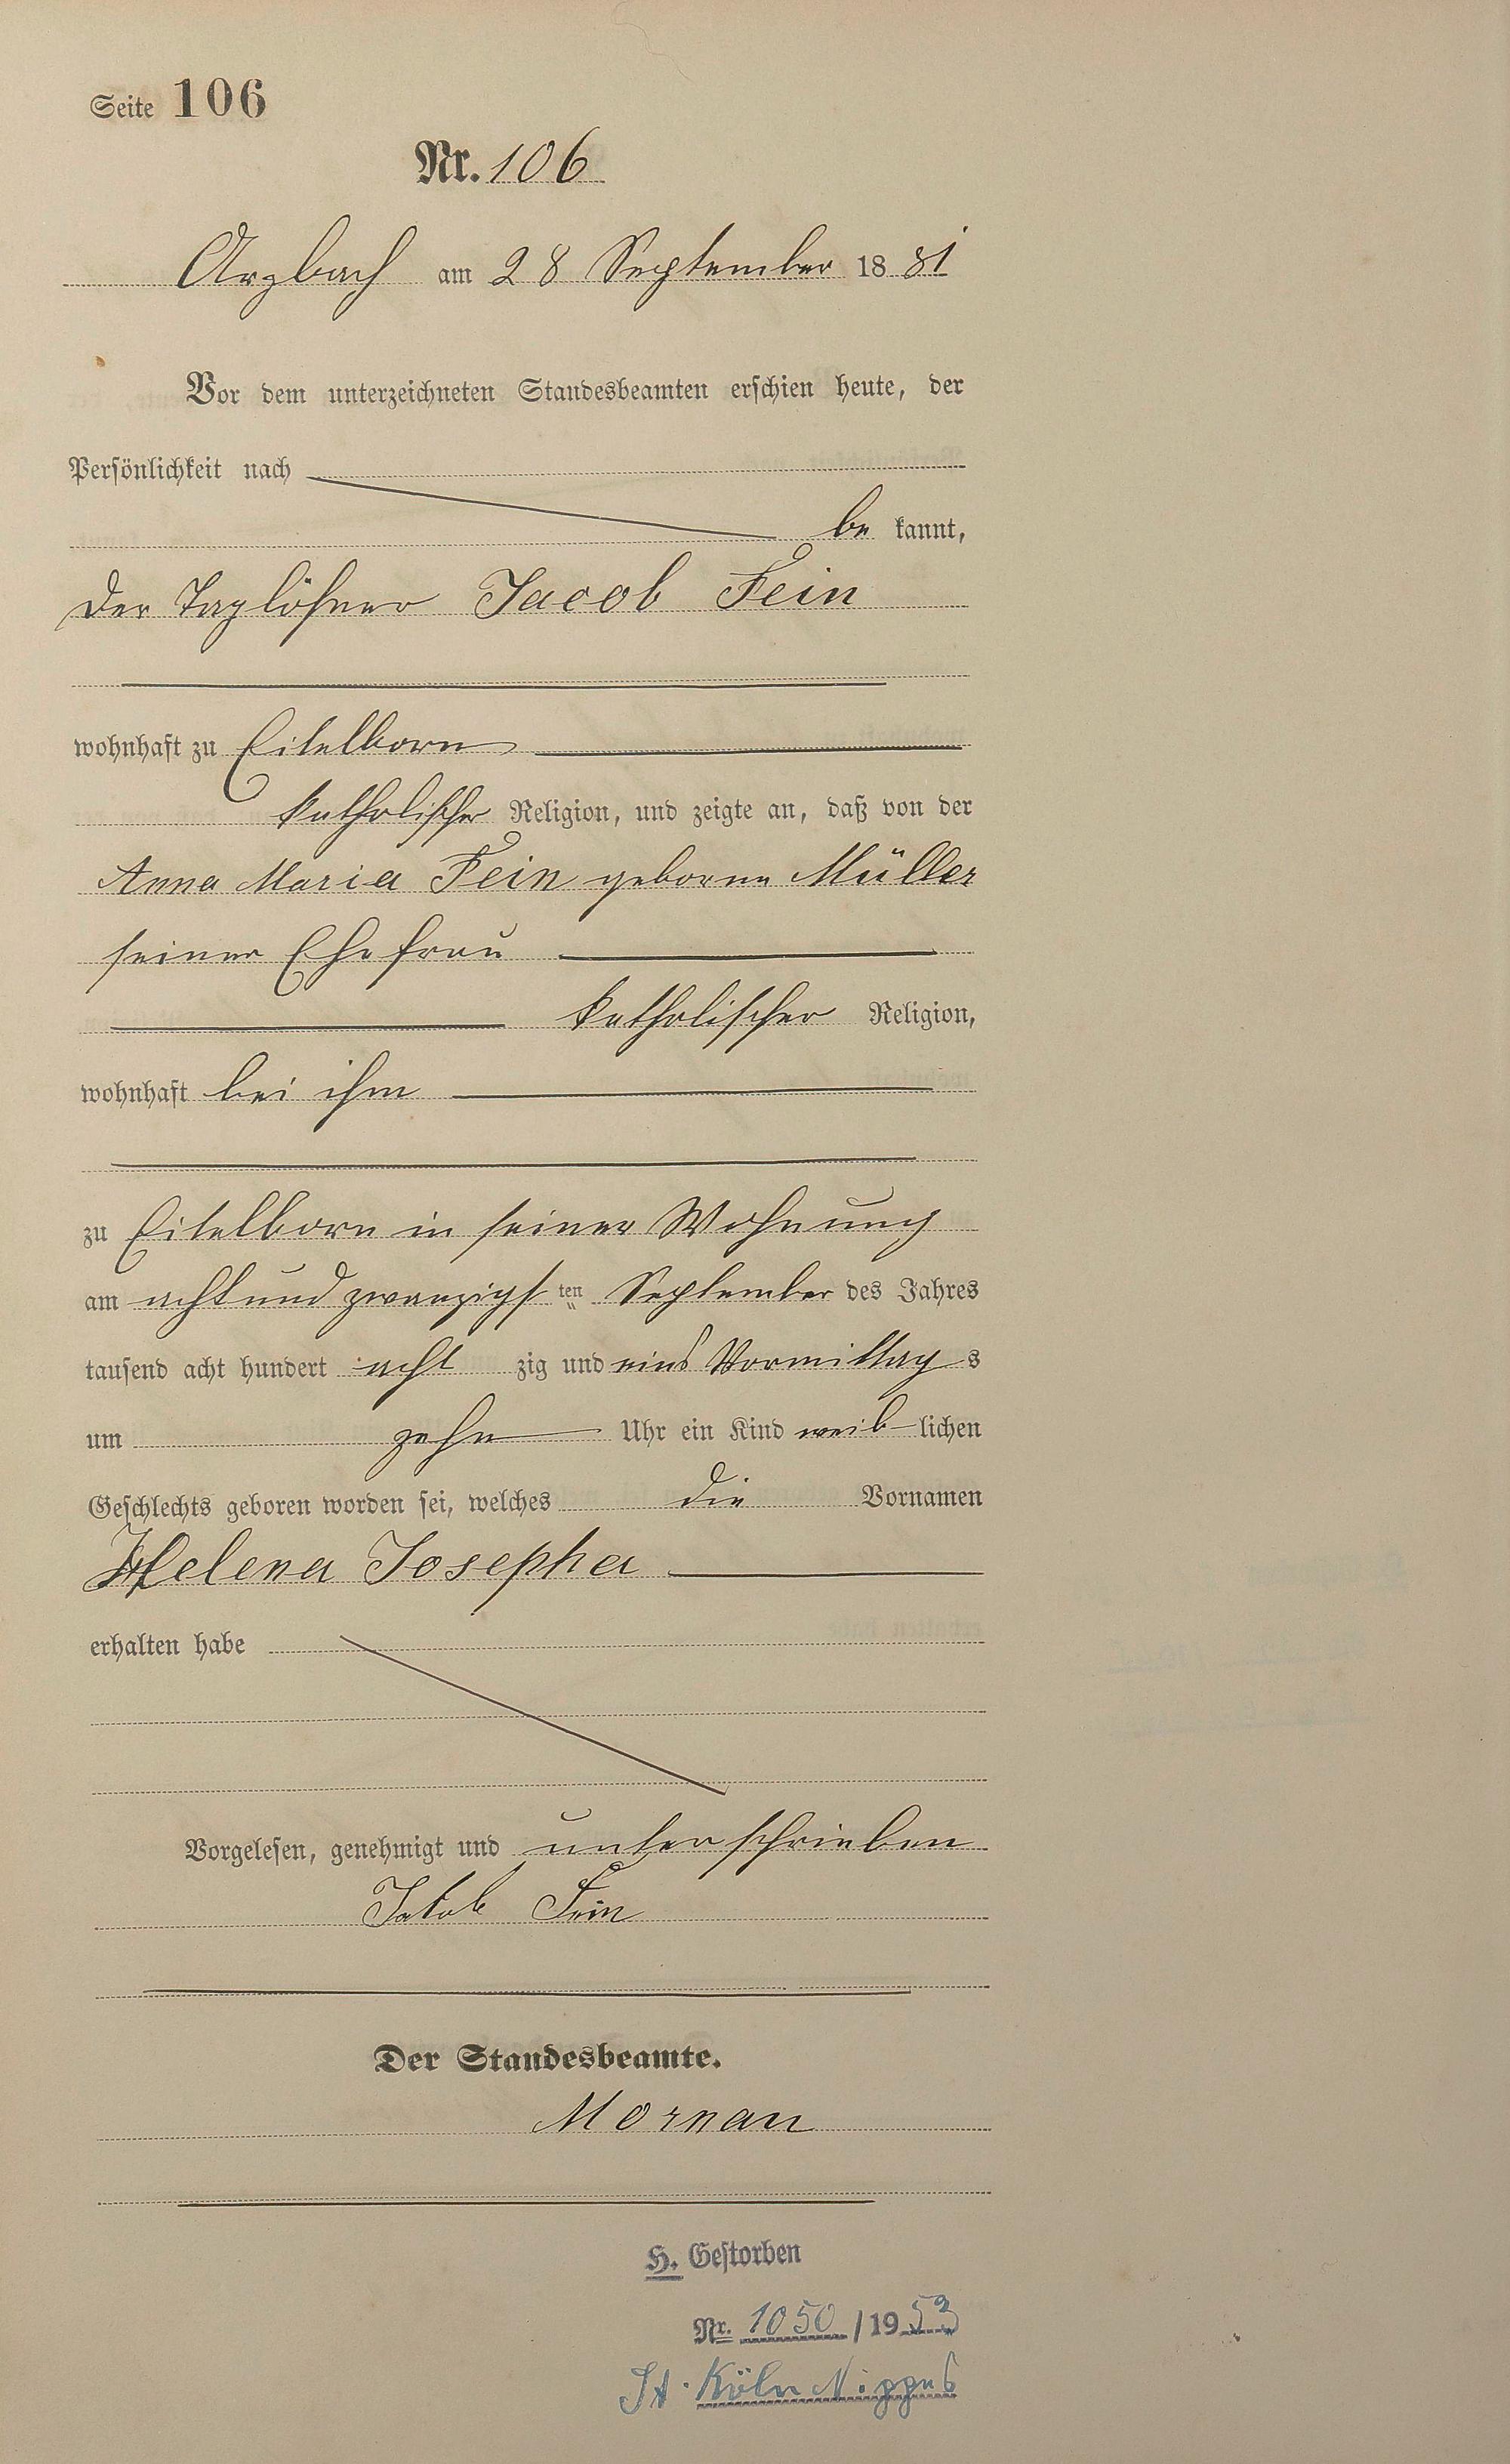 Seite 106
Nr. 106
Arzbach am 28 September 1881
Vor dem unterzeichneten Standesbeamten erschien heute, der
Persönlichkeit nach
be kannt,
der Taglöhner Jacob Fein
wohnhaft zu Eitelborn
katholischer Religion, und zeigte an, daß von der
Anna Maria Fein geborne Müller
seiner Ehefrau
katholischer Religion,
wohnhaft bei ihm
zu Eitelborn in seiner Wohnung
am achtundzwanzigsten September des Jahres
tausend acht hundert acht zig und eins Vormittags
um zehn Uhr ein Kind weiblichen
Geschlechts geboren worden sei, welches die Vornamen
Helena Josepha
erhalten habe
Vorgelesen, genehmigt und unterschrieben
Jakob Fein
Der Standesbeamte.
Mornau
H. Gestorben
Nr. 1050/1953
St. Köln Nippes